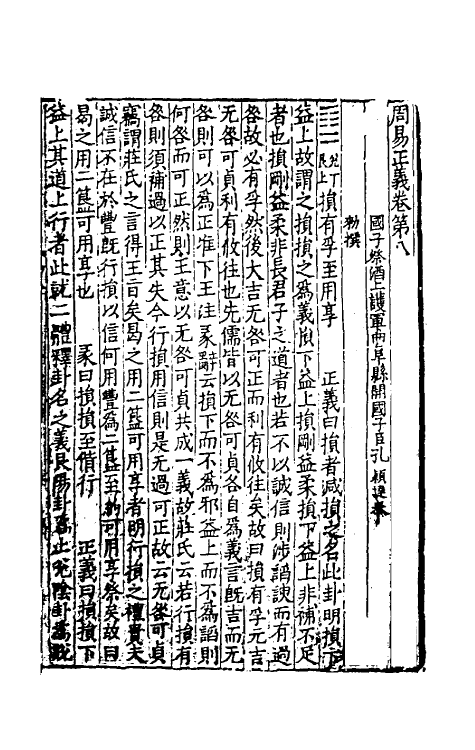 周易正義卷第八
國子祭酒上護軍曲阜縣開國子臣孔穎達奉
勅撰
兌下艮上損有孚至用享 正義曰損者減損之名此卦明損下
益上故謂之損損之為義損下益上損剛益柔損下益上非補不足
者也損剛益柔非長君子之道者也若不以誠信則涉謟諛而有過
各故必有孚然後大吉无咎可正而利有攸往矣故曰損有孚元吉
无咎可貞利有攸往也先儒皆以无咎可貞各自為義言既吉而无
咎則可以為正准下王注彖辭云損下而不為邪益上而不為謟則
何咎而可正然則王意以无咎可貞共成一義故莊氏云若行損有
咎則須補過以正其失今行損用信則是无過可正故云无咎可貞
竊謂莊氏之言得王旨矣曷之用二簋可用享者明行損之禮貴夫
誠信不在於豐既行損以信何用豐為二簋至約可用享祭矣故曰
曷之用二簋可用享也 彖曰損損至偕行 正義曰損損下
益上其道上行者此就二體釋卦名之義艮陽卦為止兌陰卦為說